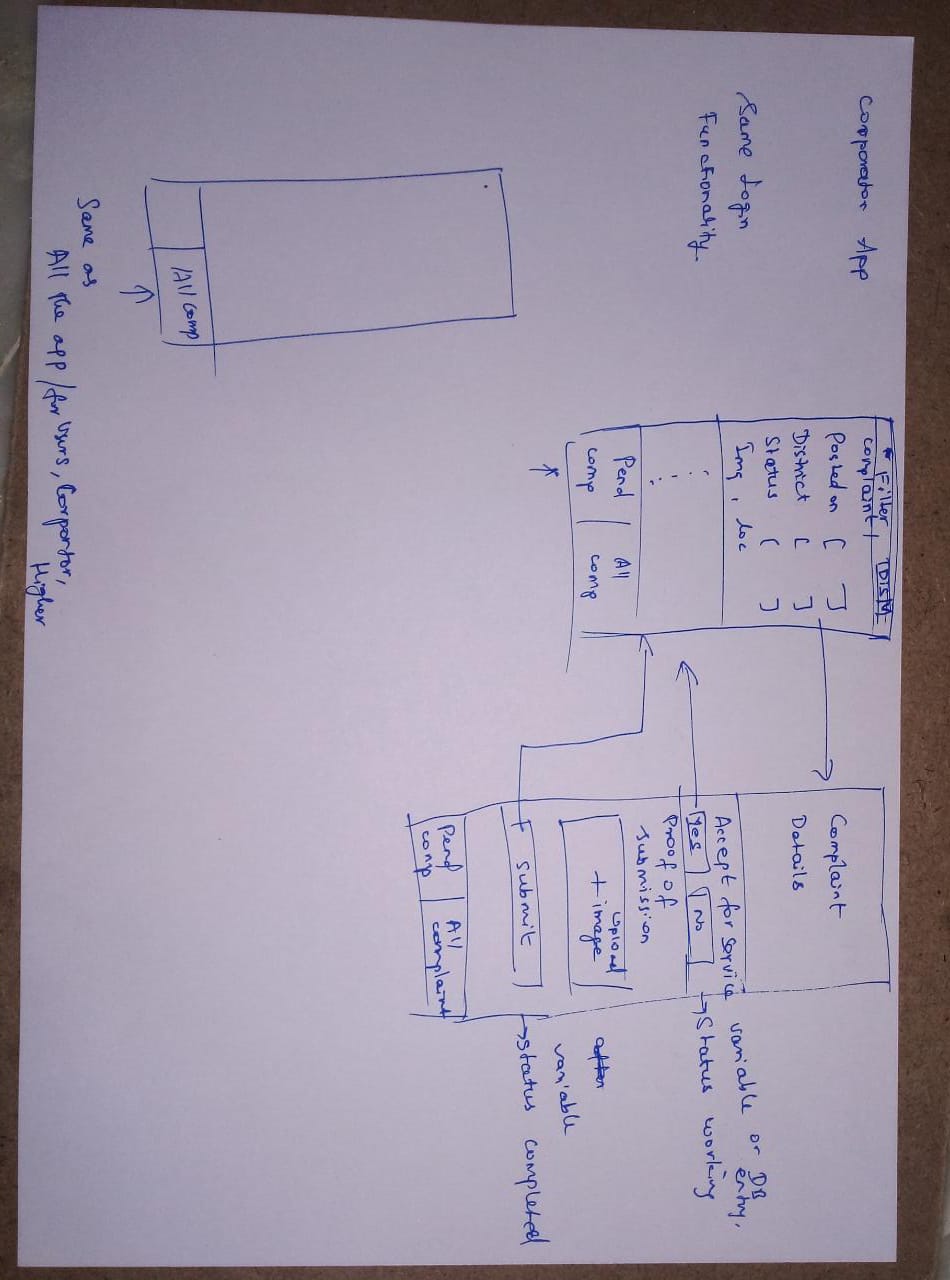 Corporator App
Same Login
Functionality
Filter
complaint 1
Posted on [ ]
District [ ]
Status [ ]
Img, loc
Pend
comp
All
comp
Complaint
Details
Accept for service variable or DB
entry.
Yes No
Status working
Proof of
submission
Upload
+ image
variable
Submit
Status completed
Pend
comp
All
complaint
All Comp
Same as
All the app / for Users, Corportor,
Higher